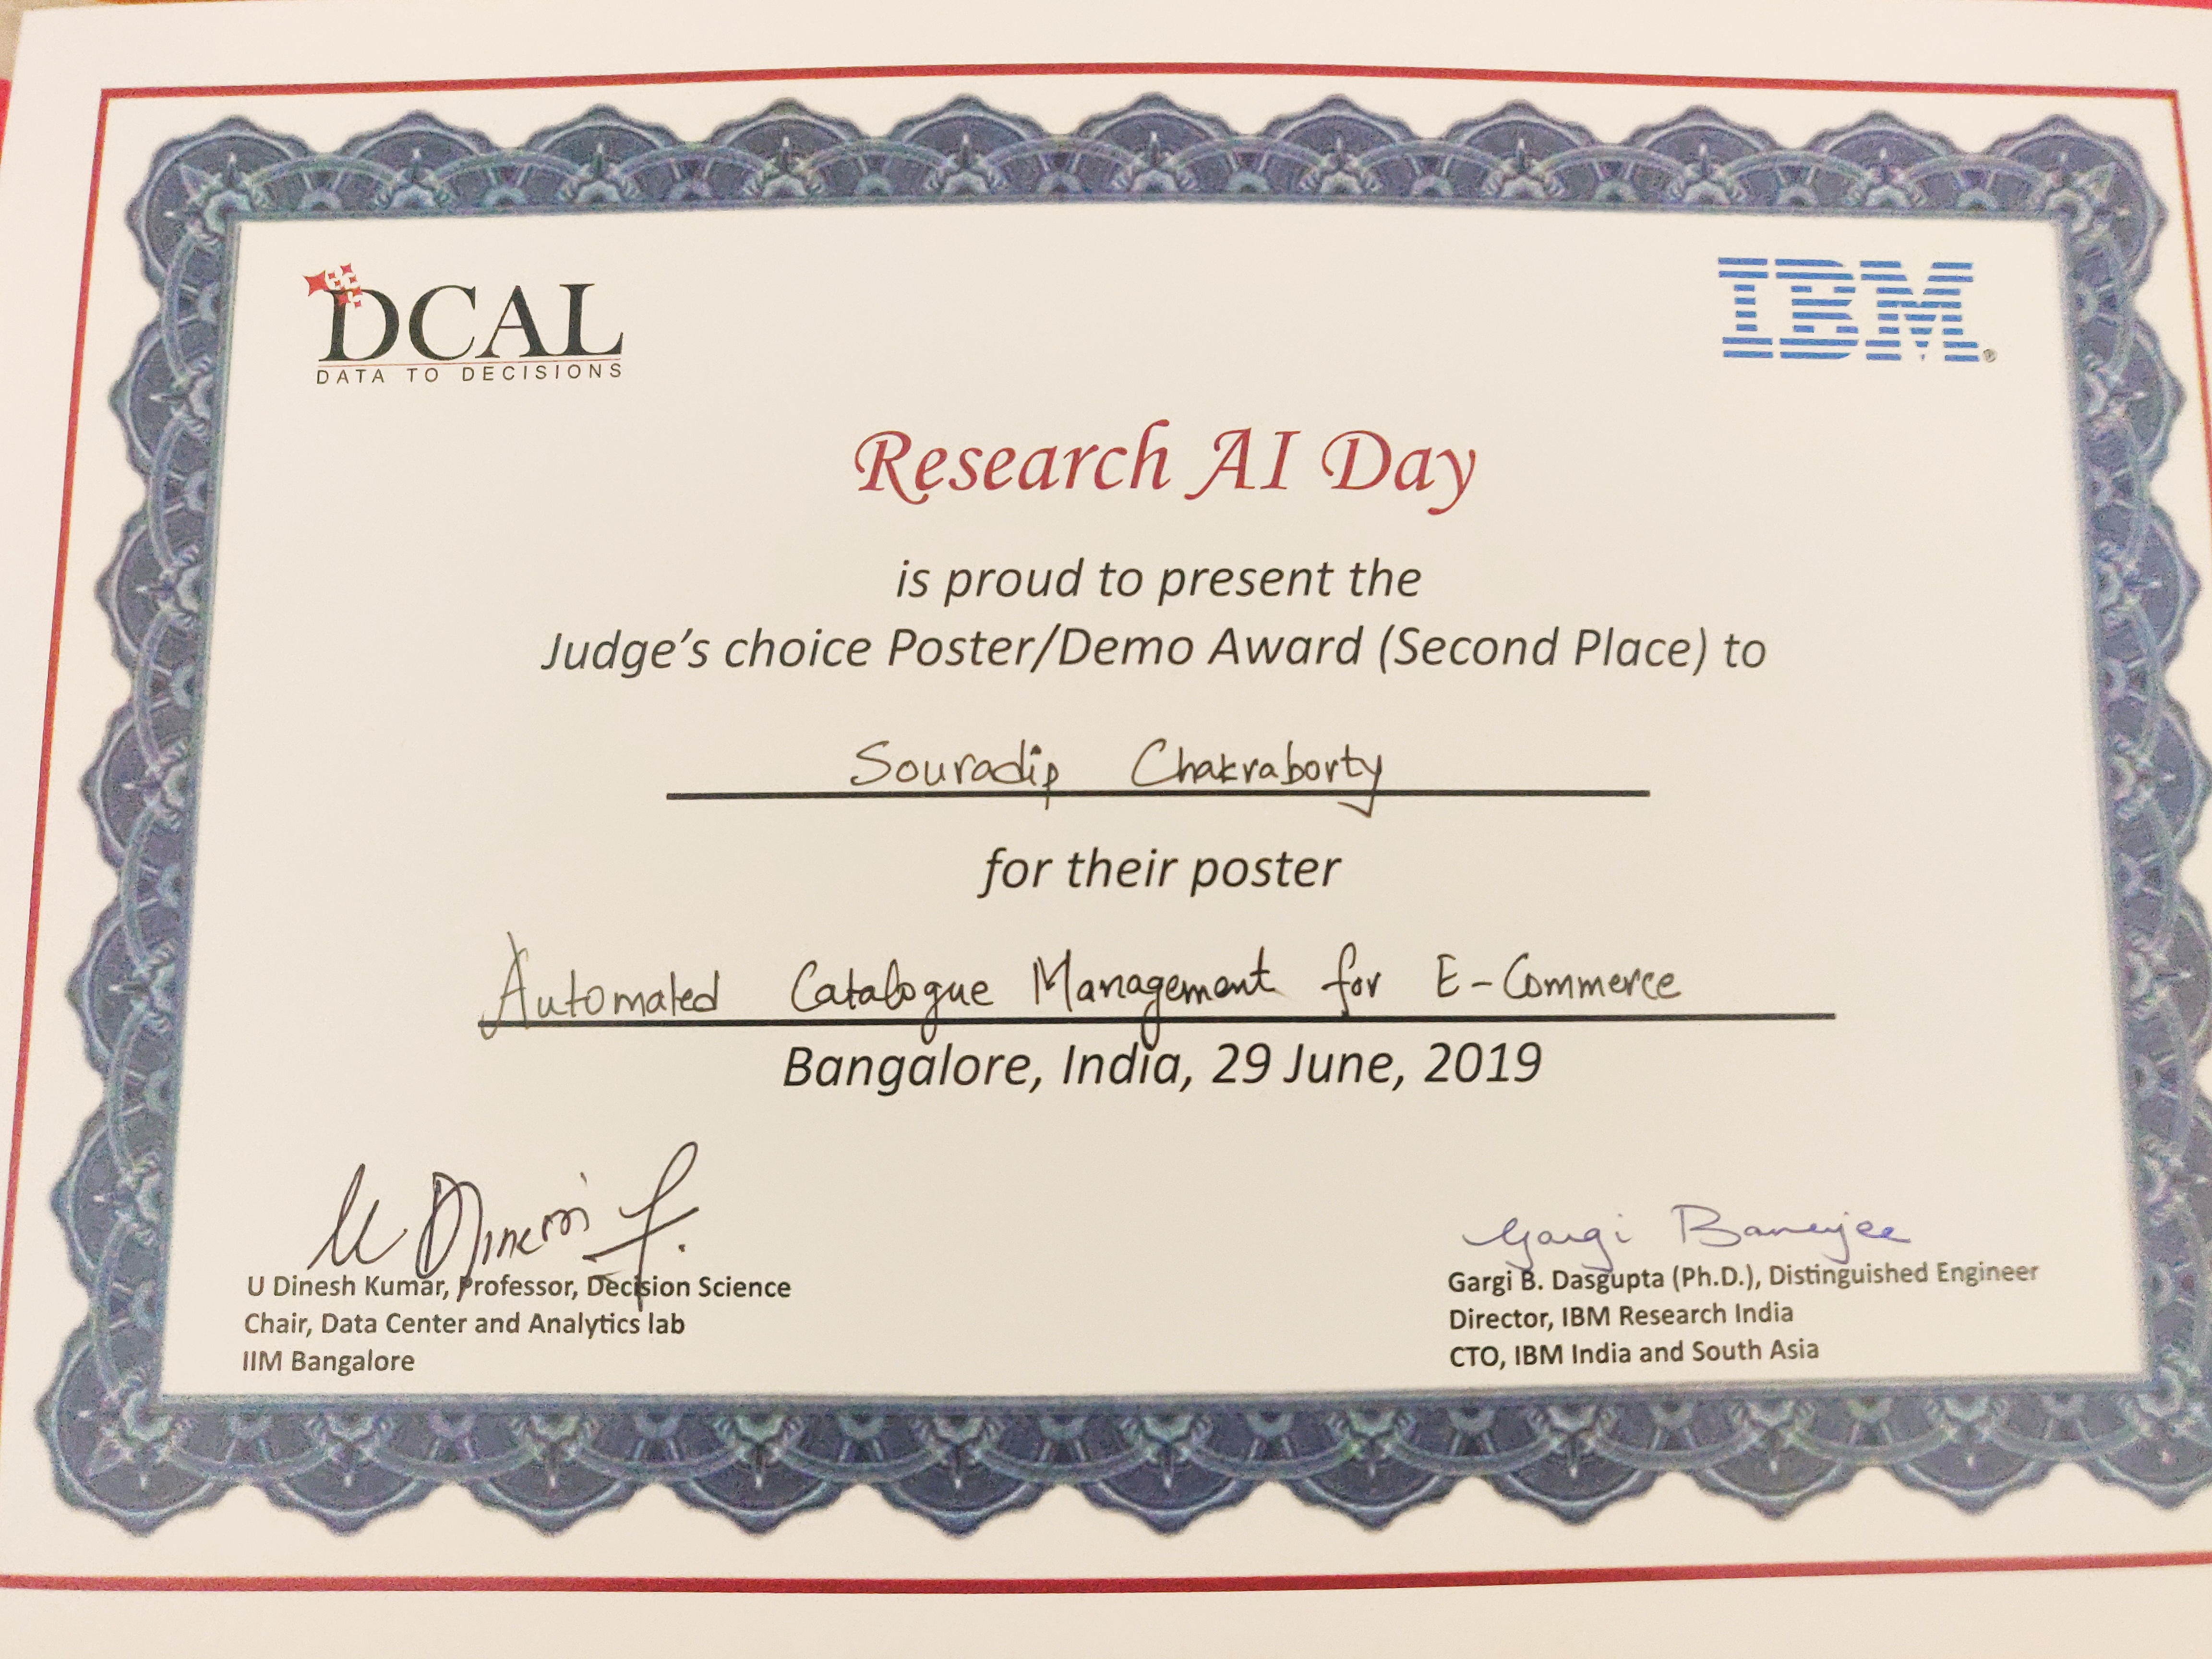 DCAL
DATA TO DECISIONS
IBM®
Research AI Day
is proud to present the
Judge's choice Poster/Demo Award (Second Place) to
Souradip Chakraborty
for their poster
Automated Catalogue Management for E-Commerce
Bangalore, India, 29 June, 2019
U Dinesh
Gargi Banerjee
U Dinesh Kumar, Professor, Decision Science
Chair, Data Center and Analytics lab
IIM Bangalore
Gargi B. Dasgupta (Ph.D.), Distinguished Engineer
Director, IBM Research India
CTO, IBM India and South Asia